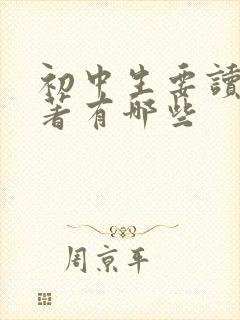 初中生要讀
著有哪些
周京平